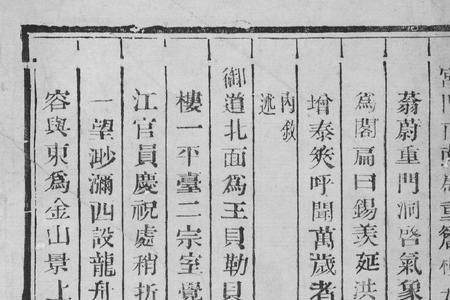 重簷
蓊蔚重門洞啓氣象
爲閣扁曰錫羨延洪
增泰爽呼聞萬歲者
內敘
述
御道北面爲王貝勒貝
樓一平臺二宗室覺
江官員慶祝處稍折
一望渺瀰西設龍舟
容與東爲金山景上